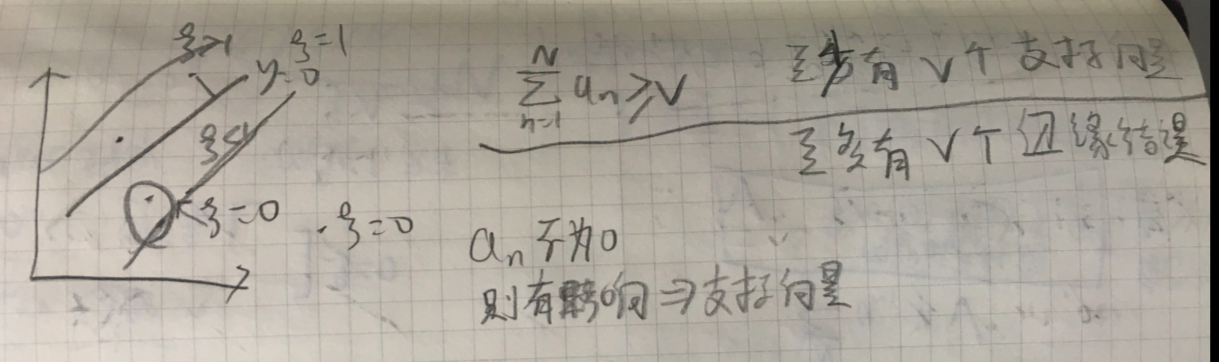 ξ>1
ξ=1
y=0
ξ<1
ξ=0
ξ=0
N
∑ an ≥ν
n=1
至少有ν个支持向量
至多有ν个边缘错误
an 不为0
则有影响⇒支持向量